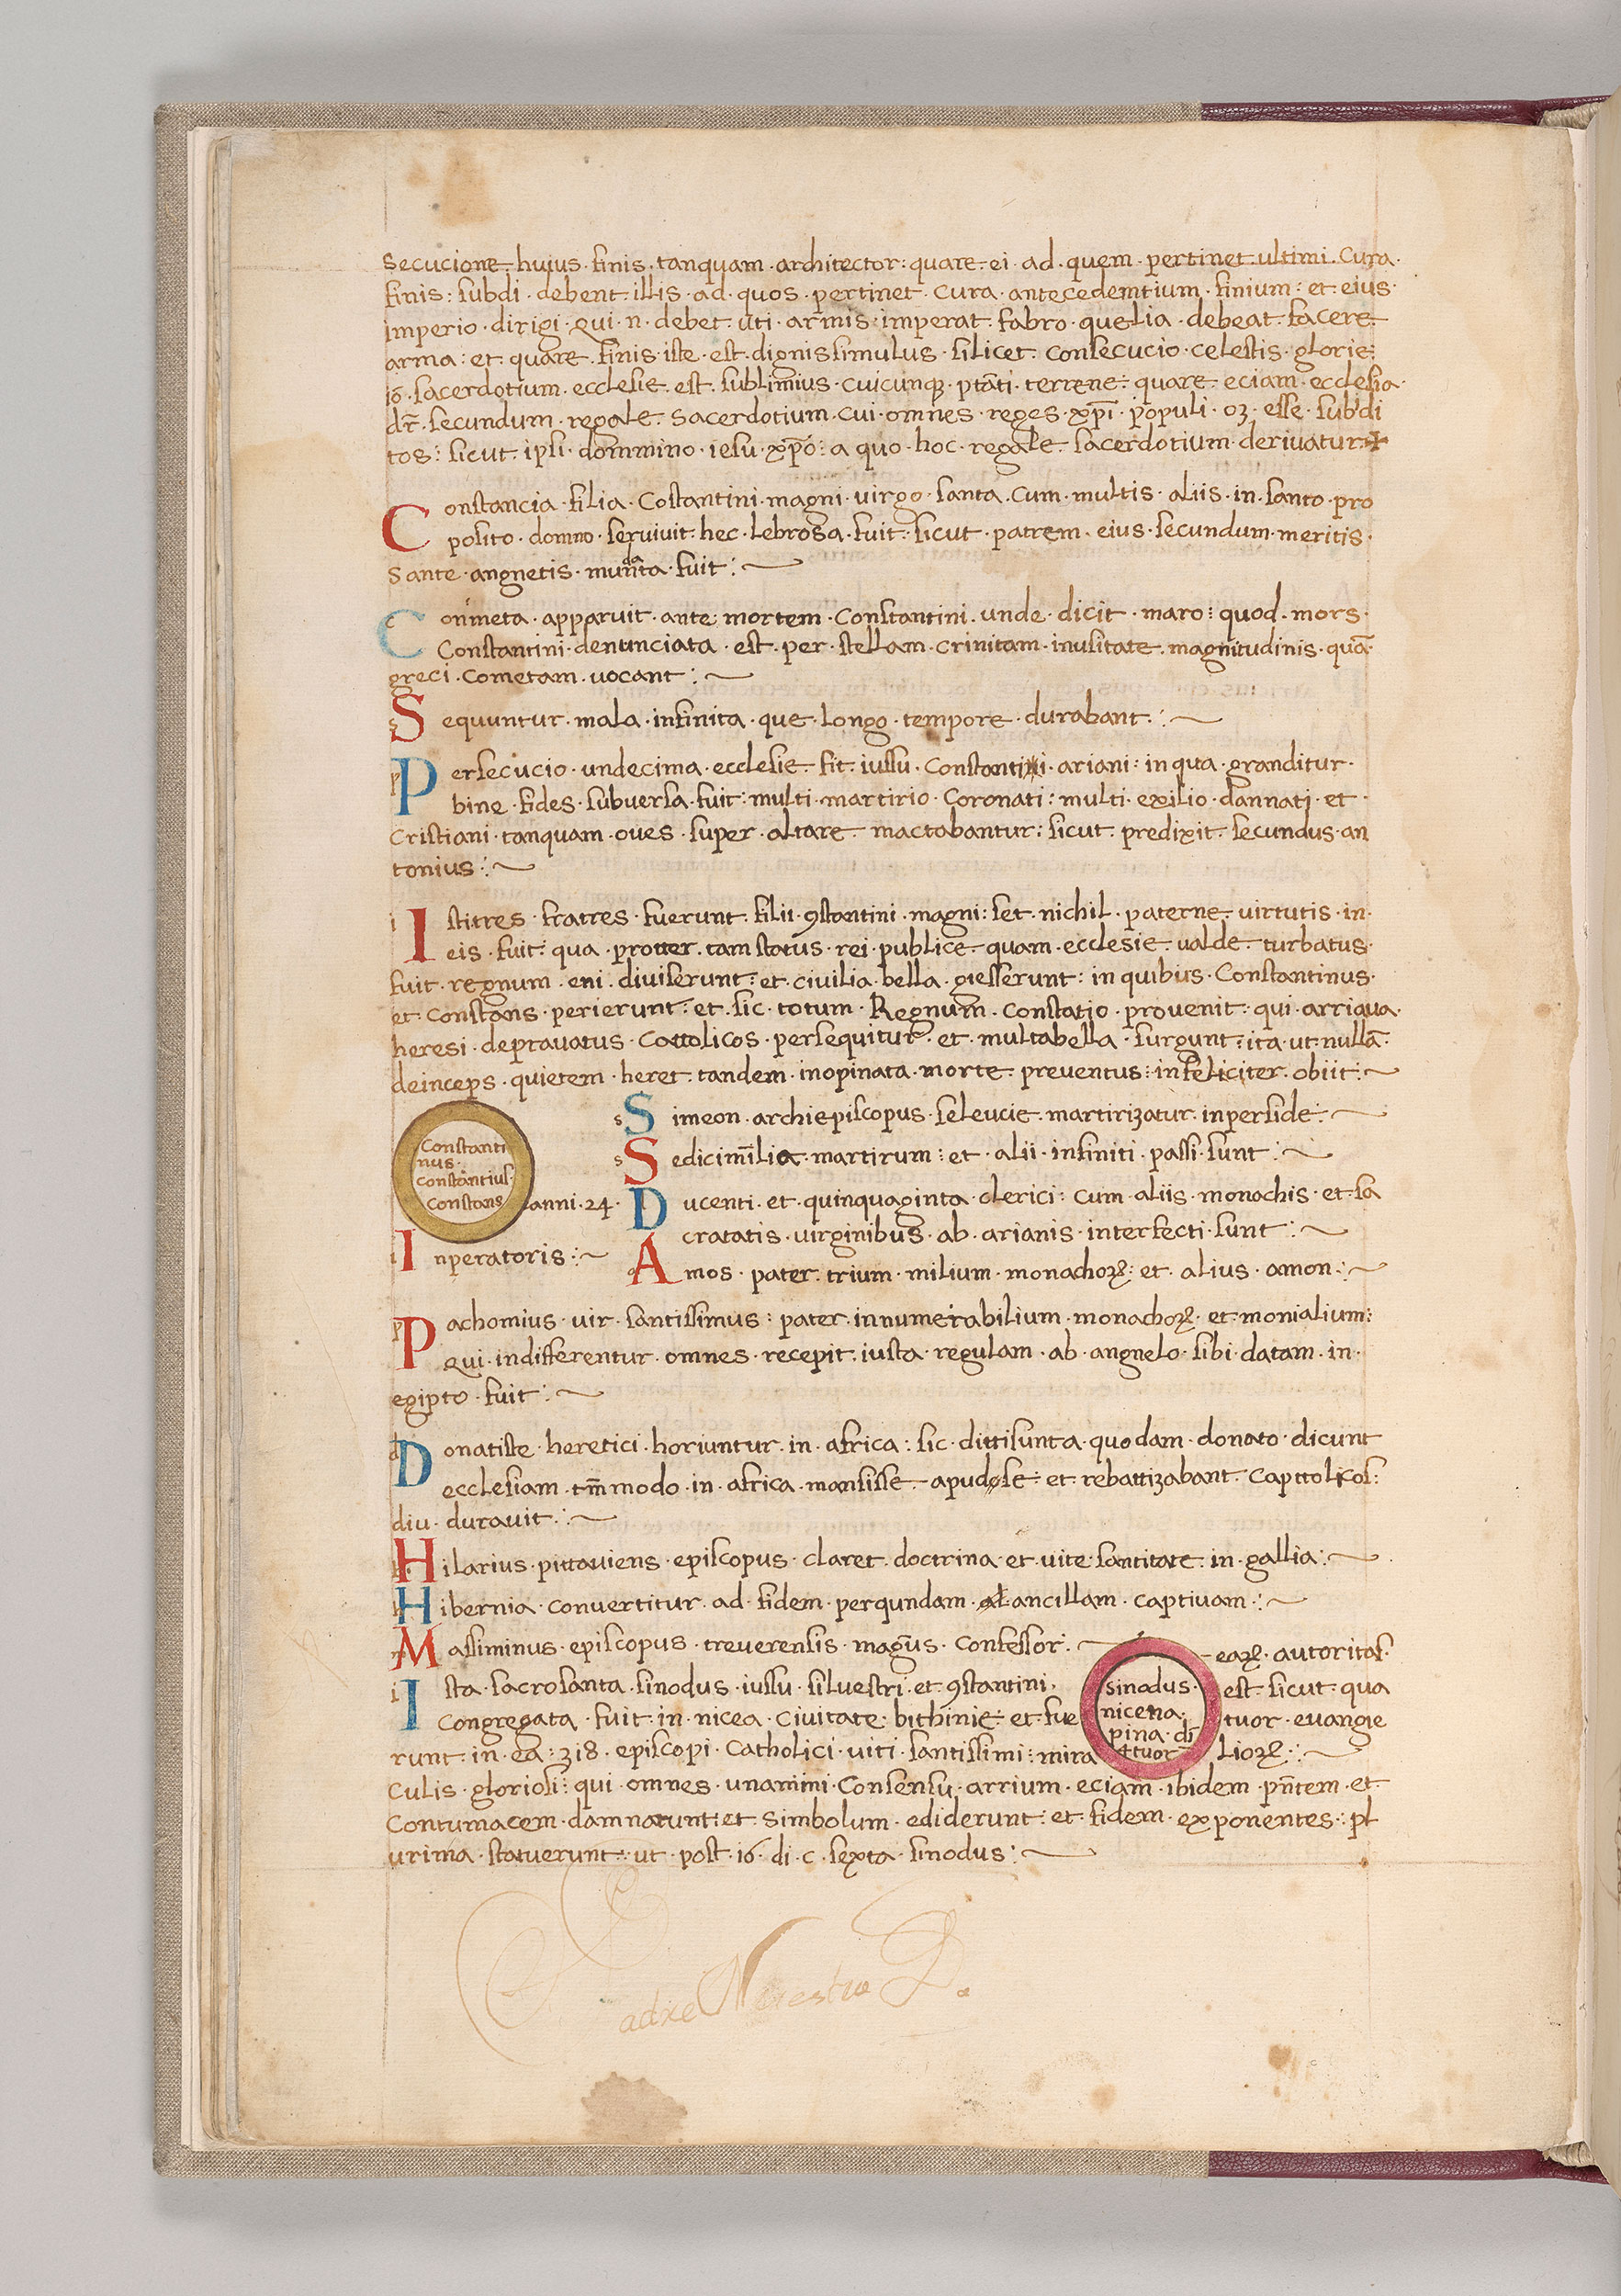 secucione. huius. finis. tanquam. architector: quare. ei. ad. quem. pertinet. ultimi. Cura.
finis: subdi. debent. illis. ad. quos. pertinet. cura. antecedemtium. finium: et. eius.
imperio. dirigi. qui. n. debet. uti. armis. imperat. fabro. quelia. debeat. facere.
arma: et. quare. finis. iste. est. dignissimulus. silicet. consecucio. celestis. glorie:
iō. sacerdotium. ecclesie. est. sublimius. cuicunqꝫ. ptāti. terrene: quare. eciam. ecclesia.
dr̄. secundum. regale. sacerdotium. cui. omnes. reges. xp̄i. populi. oꝫ. esse. subdi
tos: sicut. ipsi. dommino. iesu. xp̄o: a quo. hoc. regale. sacerdotium. derivatur
Constancia. filia. Costantini. magni. virgo. santa. cum. multis. aliis. in. santo. pro
posito. domno. servivit: hec. lebrosa. fuit: sicut. patrem. eius. secundum. meritis.
sante. angnetis. mundata. fuit:~
Conmeta. apparuit. ante. mortem. Constantini. unde. dicit. maro: quod. mors.
Constantini. denunciata. est. per. stellam. crinitam. inusitate. magnitudinis. quā.
greci. Cometam. uocant:~
Sequuntur. mala. infinita. que. longo. tempore. durabant:~
Persecucio. undecima. ecclesie. fit. iussu. Constantini. ariani: in qua. granditur.
bine. fides. subversa. fuit: multi. martirio. Coronati: multi. exilio. dannati. et.
Cristiani. tanquam. oves. super. altare. mactabantur: sicut. predixit. secundus. an
tonius:~
Istitres. fratres. fuerunt. filii. ꝯstantini. magni: set. nichil. paterne. virtutis. in.
eis. fuit: qua. protter. tam status. rei. publice. quam. ecclesie. ualde. turbatus.
fuit. regnum. eni. diviserunt: et. civilia. bella. giesserunt: in quibus. Constantinus.
et. Constans. perierunt: et. sic. totum. Regnum. constatio. provenit: qui. arriana.
heresi. depravatus. Cattolicos. persequitur. et. multabella. surgunt: ita. ut. nullā.
deinceps. quietem. heret. tandem. inopinata. morte. preventus: infeliciter. obiit:~
Constanti
nus.
constantius.
Constans
anni. 24.
Inperatoris:~
Simeon. archiepiscopus. seleucie. martirizatur. inperside:~
Sedicim̄ilia. martirum: et. alii. infiniti. passi. sunt:~
Ducenti. et. quinquaginta. clerici: cum. aliis. monachis. et. sa
cratatis. virginibus. ab. arianis. interfecti. sunt:~
Amos. pater. trium. milium. monachoꝝ: et. alius. amon:~
Pachomius. vir. santissimus: pater. innumerabilium. monachoꝝ. et. monialium:
qui. indifferentur. omnes. recepit. iusta. regulam. ab. angnelo. sibi. datam. in.
egipto. fuit:~
Donatiste. heretici. horiuntur. in. africa: sic. dittisunta. quodam. donato. dicunt
ecclesiam. tm̄modo. in. africa. mansisse. apud se: et. rebattizabant. Capttolicos:
diu. duravit:~
Hilarius. pittaviens. episcopus. claret. doctrina. et. vite. santitate. in. gallia:~
Hibernia. convertitur. ad. fidem. perqundam. ancillam. captivam:~
Massiminus. episcopus. treverensis. magnus. Confessor:
Ista. sacrosanta. sinodus. iussu. silvestri. et. ꝯstantini.
Congregata. fuit. in. nicea. Civitate. bithinie: et. fue
runt. in. ea: 318. episcopi. Catholici. viri. santissimi: mira
sinodus.
nicena.
pina. di
4tuor
eaꝝ. autoritas.
est. sicut. qua
tuor. evangie
lioꝝ:~
Culis. gloriosi: qui. omnes. unanimi. Consensu. arrium. eciam. ibidem. pn̄tem. et.
Contumacem. damnarunt: et. simbolum. ediderunt: et. fidem. exponentes: pl
urima. statuerunt: ut. post. 16. di. c. sexta. sinodus:~
adre Nuestro D.